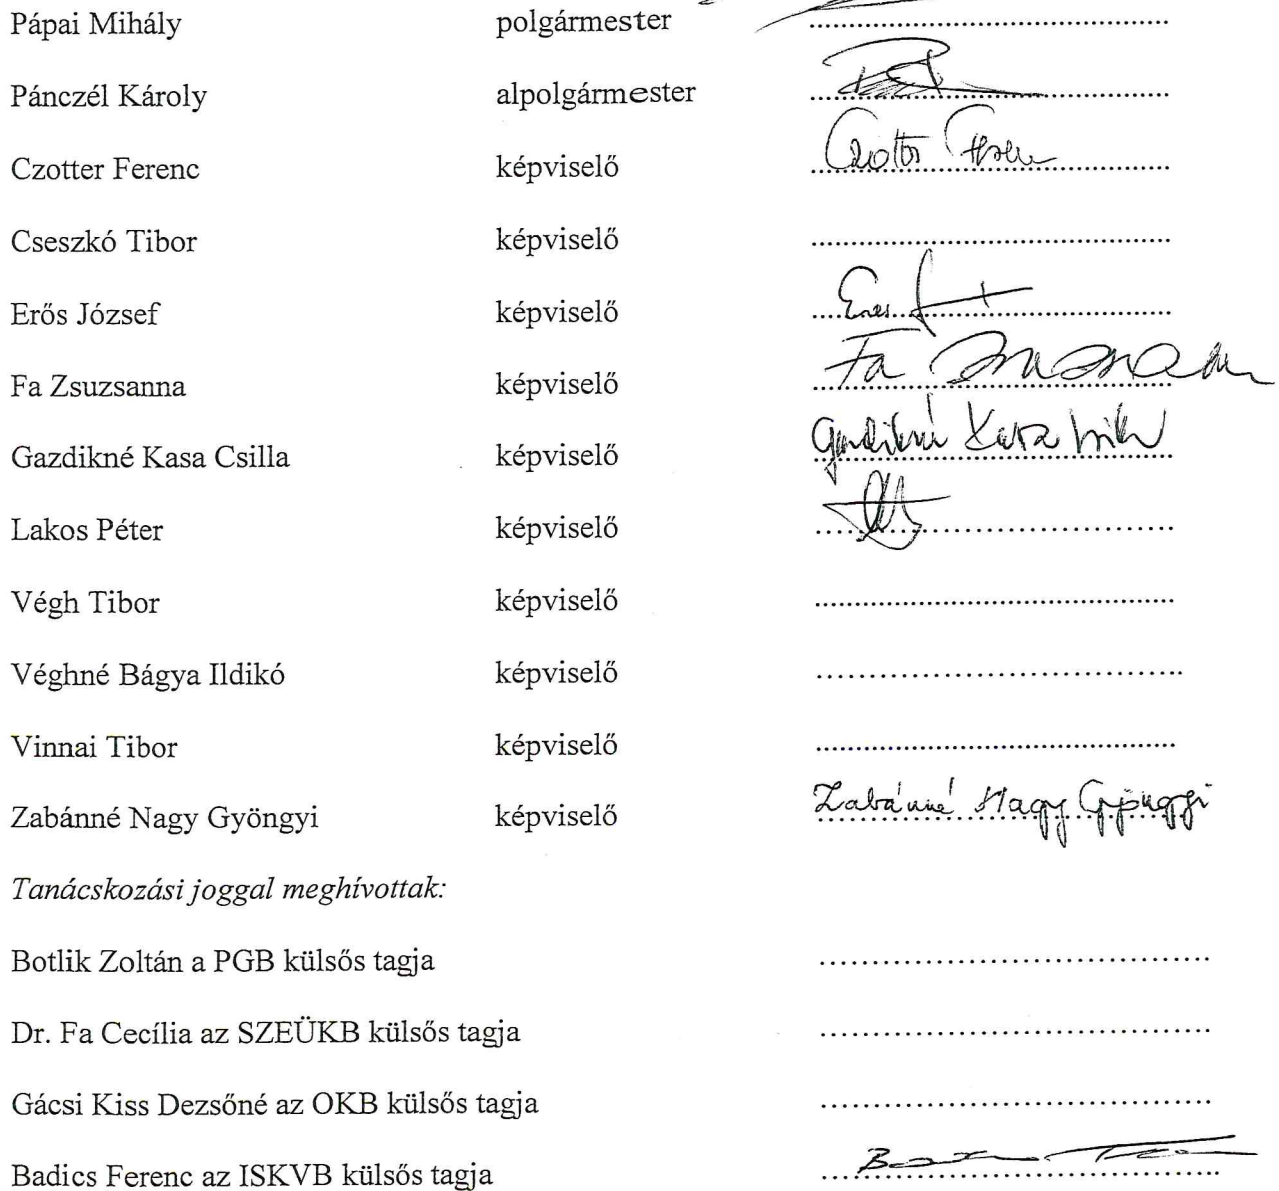 Pápai Mihály polgármester ........................................
Pánczél Károly alpolgármester ........................................
Czotter Ferenc képviselő ........................................ Czotter Ferenc
Cseszkó Tibor képviselő ........................................
Erős József képviselő ........................................ Erős
Fa Zsuzsanna képviselő ........................................ Fa Zsuzsanna
Gazdikné Kasa Csilla képviselő ........................................ Gazdikné Kasa Csilla
Lakos Péter képviselő ........................................
Végh Tibor képviselő ........................................
Véghné Bágya Ildikó képviselő ........................................
Vinnai Tibor képviselő ........................................
Zabánné Nagy Gyöngyi képviselő ........................................ Zabánné Nagy Gyöngyi
Tanácskozási joggal meghívottak:
Botlik Zoltán a PGB külsős tagja ........................................
Dr. Fa Cecília az SZEÜKB külsős tagja ........................................
Gácsi Kiss Dezsőné az OKB külsős tagja ........................................
Badics Ferenc az ISKVB külsős tagja ........................................